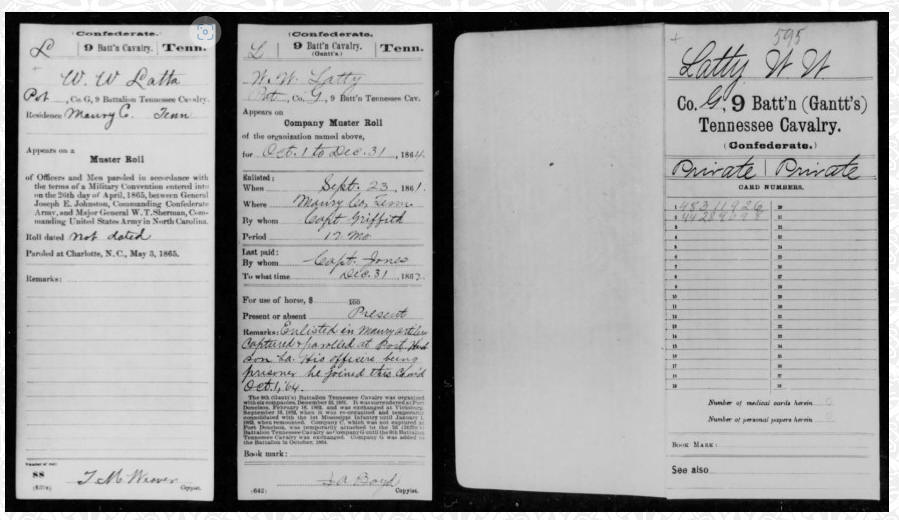 (Confederate.)
L | 9 Batt'n Cavalry. | Tenn.
W. W Latta
Pvt, Co. G, 9 Battalion Tennessee Cavalry.
Residence Maury C. Tenn
Appears on a
Muster Roll
of Officers and Men paroled in accordance with
the terms of a Military Convention entered into
on the 26th day of April, 1865, between General
Joseph E. Johnston, Commanding Confederate
Army, and Major General W. T. Sherman, Com-
manding United States Army in North Carolina.
Roll dated not dated
Paroled at Charlotte, N. C., May 3, 1865.
Remarks:
Number of roll:
88
T. M. Weaver
Copyist.
(Confederate.)
L | 9 Batt'n Cavalry. (Gantt's) | Tenn.
W. W. Latty
Pvt, Co. G, 9 Batt'n Tennessee Cav.
Appears on
Company Muster Roll
of the organization named above,
for Oct. 1 to Dec. 31, 1864.
Enlisted:
When Sept. 23, 1861.
Where Maury Co. Tenn
By whom Capt Griffith
Period 12 Mo
Last paid:
By whom Capt. Jones
To what time Dec. 31, 186
For use of horse, $ 100
Present or absent Present
Remarks: Enlisted in Maury artillery
Captured & parolled at Port Hud
son La. His officers being
prisoner he joined this Co'm'd
Oct. 1, '64.
The 9th (Gantt's) Battalion Tennessee Cavalry was organized
with six companies, December 1861. It was surrendered at Fort
Donelson, February 16, 1862, and was exchanged at Vicksburg,
September 1862, when it was re-organized and temporarily
consolidated with the 1st Mississippi Infantry until January 1,
1863, when remounted. Company C, which was not captured at
Fort Donelson, was temporarily attached to the
Battalion Tennessee Cavalry as Company G until the 9th Battalion
Tennessee Cavalry was exchanged. Company G was added to
the Battalion in October, 1864.
Book mark:
Boyd
(642) Copyist.
595
Latty W W
Co. G, 9 Batt'n (Gantt's)
Tennessee Cavalry.
(Confederate.)
Private | Private
CARD NUMBERS.
1 48311926 20
2 44289698 21
3 22
4 23
5 24
6 25
7 26
8 27
9 28
10 29
11 30
12 31
13 32
14 33
15 34
16 35
17 36
18 37
19 38
Number of medical cards herein 0
Number of personal papers herein
BOOK MARK:
See also